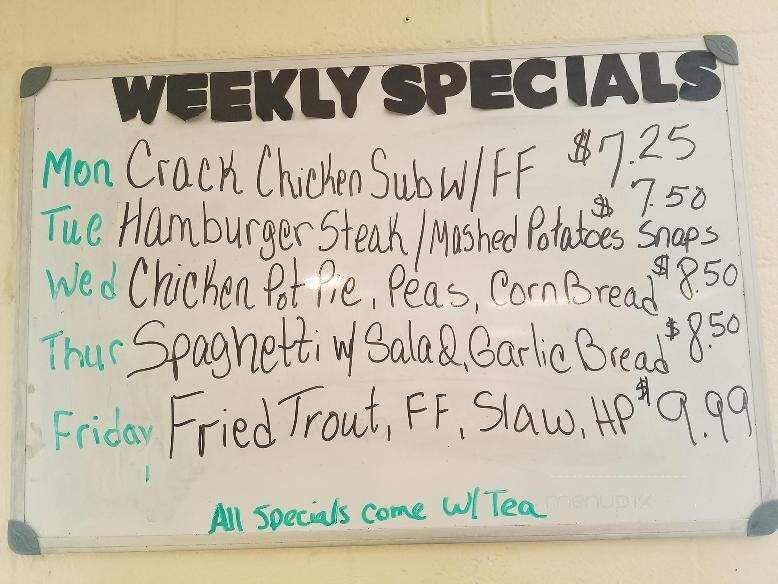 WEEKLY SPECIALS
Mon Crack Chicken Sub W/FF $7.25
Tue Hamburger Steak/Mashed Potatoes Snaps $7.50
Wed Chicken Pot Pie, Peas, CornBread $8.50
Thur Spaghetti w/ Salad, Garlic Bread $8.50
Friday Fried Trout, FF, Slaw, HP $9.99
All Specials come W/ Tea
menupix